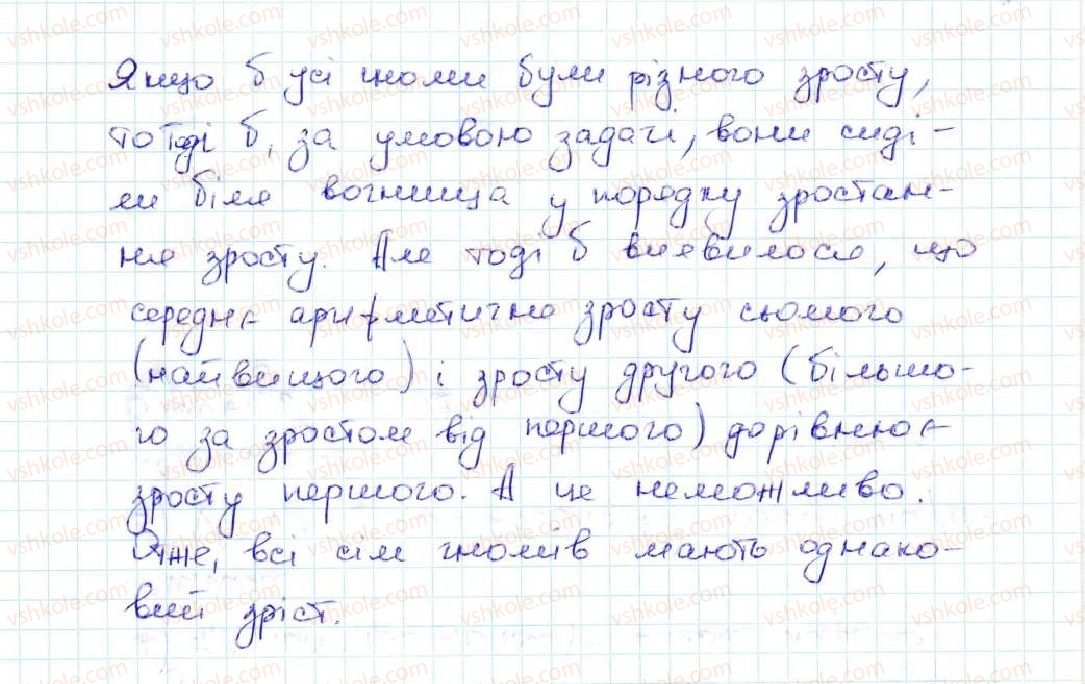 Якщо б усі гноми були різного зросту,
то тоді б, за умовою задачі, вони сиді-
ли біля вогнища у порядку зростан-
ня зросту. Але тоді б виявилося, що
середнє арифметичне зросту сьомого
(найвищого) і зросту другого (більшо-
го за зростом від першого) дорівнює
зросту першого. А це неможливо.
Отже, всі сім гномів мають однако-
вий зріст.